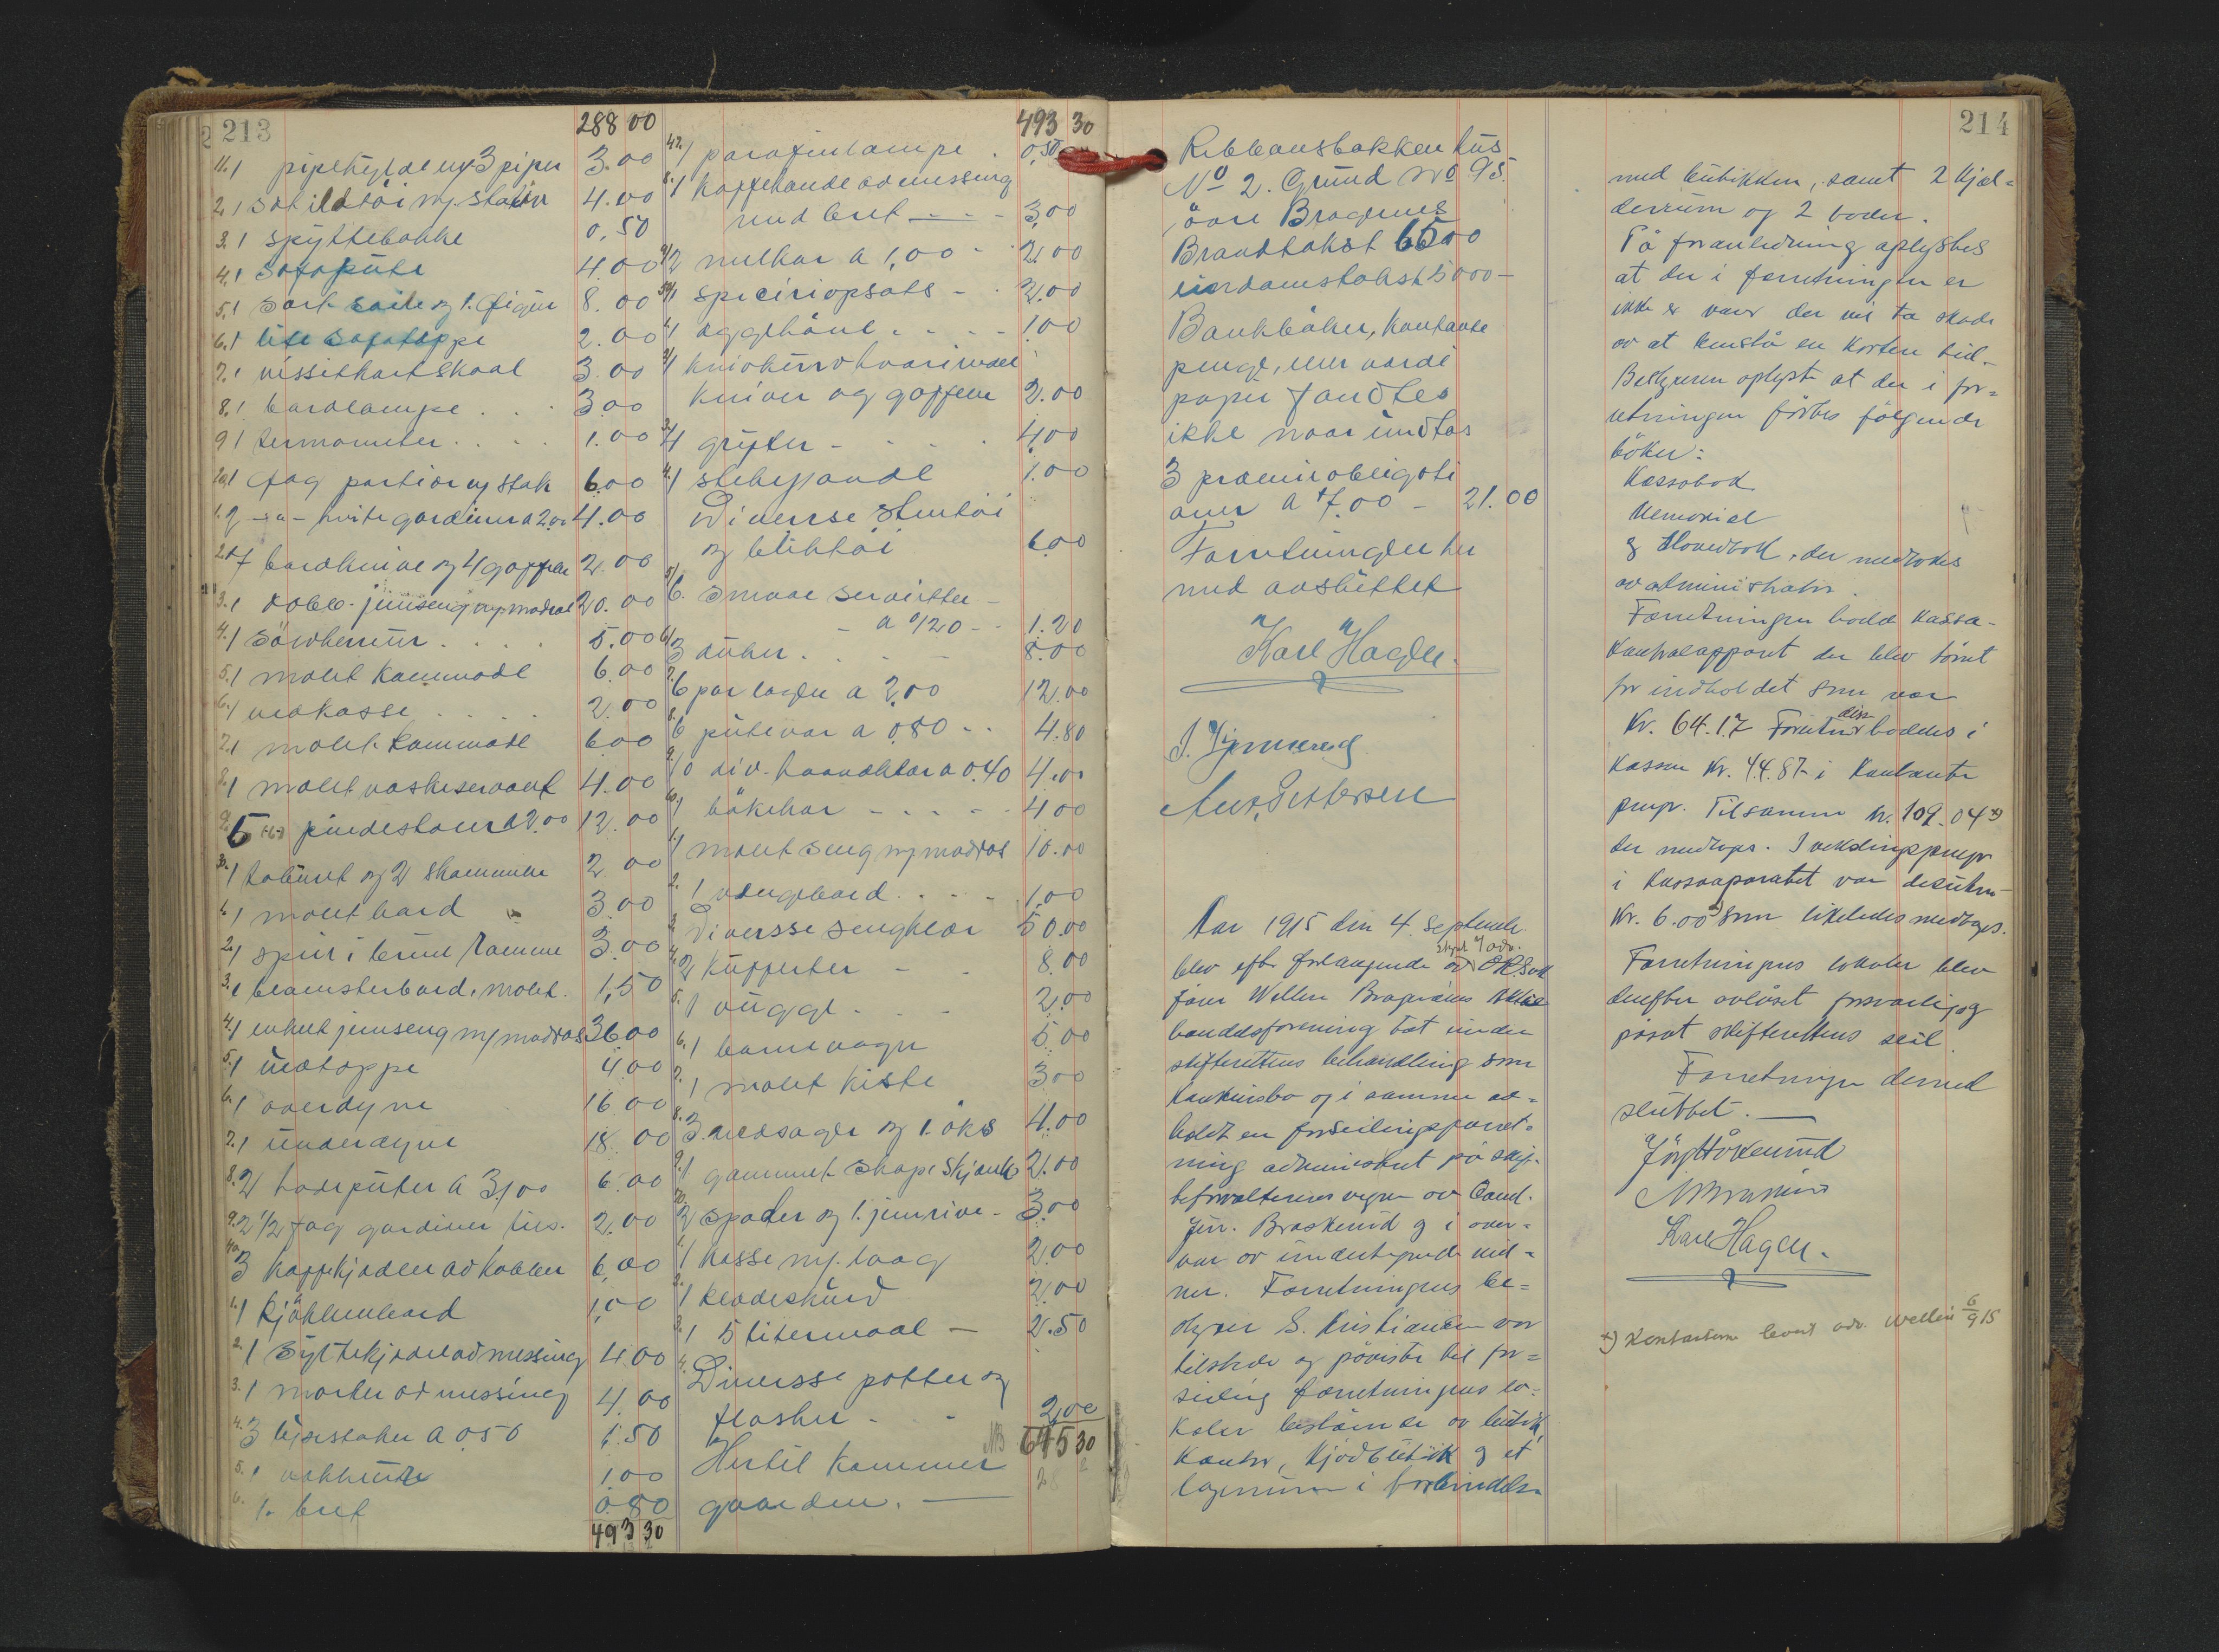 213
288 00
11.1 pipehylde m/ 3 piper 3.00
2.1 skildtöi m/. stativ 4.00
3.1 spyttebakke 0.50
4.1 Sofapüte 4.00
5.1 sort soile og 1. figur 8.00
6.1 lite Sofateppe 2.00
7.1 vissitkartskaal 3.00
8.1 bordlampe . . . 3.00
9.1 termometer . . . . 1.00
10.1 fag portiør m/ stok 6.00
1.2 -"- hvite gardiner a 2.00 4.00
2.7 bordknive og 4 gafler 2.00
3.1 dobb. jernseng m/ madras 20.00
4.1 . . . . 5.00
5.1 malet kommode 6.00
6.1 vedkasse . . . . 2.00
7.1 malet kommode 6.00
8.1 malet vaskeservant 4.00
9. 5 pindestoler a 2.00 12.00
30.1 taburet og 2 skammeler 2.00
1.1 malet bord 3.00
2.1 speil i brun ramme 3.00
3.1 blomsterbord, malet. 1.50
4.1 enkelt jernseng m/ madras 36.00
5.1 uldteppe 4.00
6.1 overdyne 16.00
7.1 ünderdyne 18.00
8.2 hodepüter a 3,00 6.00
9.2 1/2 fag gardiner tils. 2.00
40. 3 kaffekjedler av kobber 6.00
1.1 Kjökkenbord 1,00
2.1 Syltekjedel av messing 4.00
3.1 morter av messing 4.00
4.3 lysestaker a 0.50 1.50
5.1 1.00
6. 1. bret 0.80
493 30
493 30
47.1 parafinlampe . 0,50
8.1 Kaffekande av messing
med bret - - - 3,00
9.2 melkar a 1,00 - - 2.00
50.1 speceriopsats - - 2.00
1.1 . . . . 1.00
2.1 knivkurv hvori noen
kniver og gafler 2.00
3.4 gryter - . . . . 4,00
4.1 stekepande 1.00
Diversse stentöi
og blektöi 6.00
5. 6. smaa servietter -
- a 0/20 - - 1.20
6. 3 düker . . . - 8.00
7. 6 par lagen a 2,00 12.00
8. 6 pütevar a 0.80 . . 4.80
9. 10 div. haandklær a 0.40 4.00
60.1 bökekar - - - - 4.00
1.1 malet seng m/ madras 10.00
2. 1 vengebord . . . - 1,00
3. Diversse sengklær 50.00
4. 2 Kufferter - - 8.00
5. 1 vugge . . . 2,00
6. 1 barnevogn 5.00
7. 1 malet kiste 3.00
8. 3. vedsager og 1. öks 4.00
9.1 gammelt skap. skjænk 2.00
70. 2 spader og 1. jernrive - 3.00
1. 1 kasse m/. laag 2.00
2. 1 klædeskurv 2,00
3. 1 5 litermaal - 2.50
4. Diversse potter og
flasker - - - 2,00
NB 645 30
Hertil kommer
gaarden. —
214
Ribbansbakken hus
No 2. Grund No 95.
övre Bragernes
Brandtakst 6500
eiendomstakst 5000-
Bankböker, kontante
penge, eller værdi
papir fandtes
ikke naar undtas
3 præmieobligati
oner a 7.00 - 21.00
Forretningen her
med avsluttet
Karl Hagen.
Aar 1915 den 4. September
blev efter forlangende av
fører Wellen Bragernes
handelsforening tat under
skifterettens behandling som
konkursbo og i samme av=
holdt en forseilingsforret=
ning administrert på skif-
teforvalterens vegne av Cand.
jur. Braskerud og i over=
vær av undertegnede vid=
ner. Forretningens be=
styrer S. Kristiansen var
tilstede og påviste til for=
seiling forretningens lo=
kaler bestående av butik,
kontor, kjödbutik og et
lagerrum i forbindelse
med butikken, samt 2 kjel=
derrum og 2 boder.
På foranledning oplystes
at der i forretningen er
ikke er varer der vil ta skade
av at henstå en kortere tid-
Bestyreren oplyste at der i for=
retningen förtes følgende
böker:
Kassabok
Memorial
og Hovedbok, der medtokes
av administrator.
Forretningen hadde kassa-
kontrolapparat der blev tömt
for indholdet som var
Kr. 64.17 Foruten diss haddes i
kassen Kr. 44.87 i kontante
penger. Tilsammen kr. 109.04 x)
der medtoges. I vekslingspenger
i kassaapparatet var desuten
Kr. 6.00 som likeledes medtoges.
Forretningens lokaler blev
derefter avlåset forsvarlig og
påsat skifterettens seil
Forretningen dermed
sluttet. —
Karl Hagen.
x) Kontanterne levert adv. Wellén 6/9 15